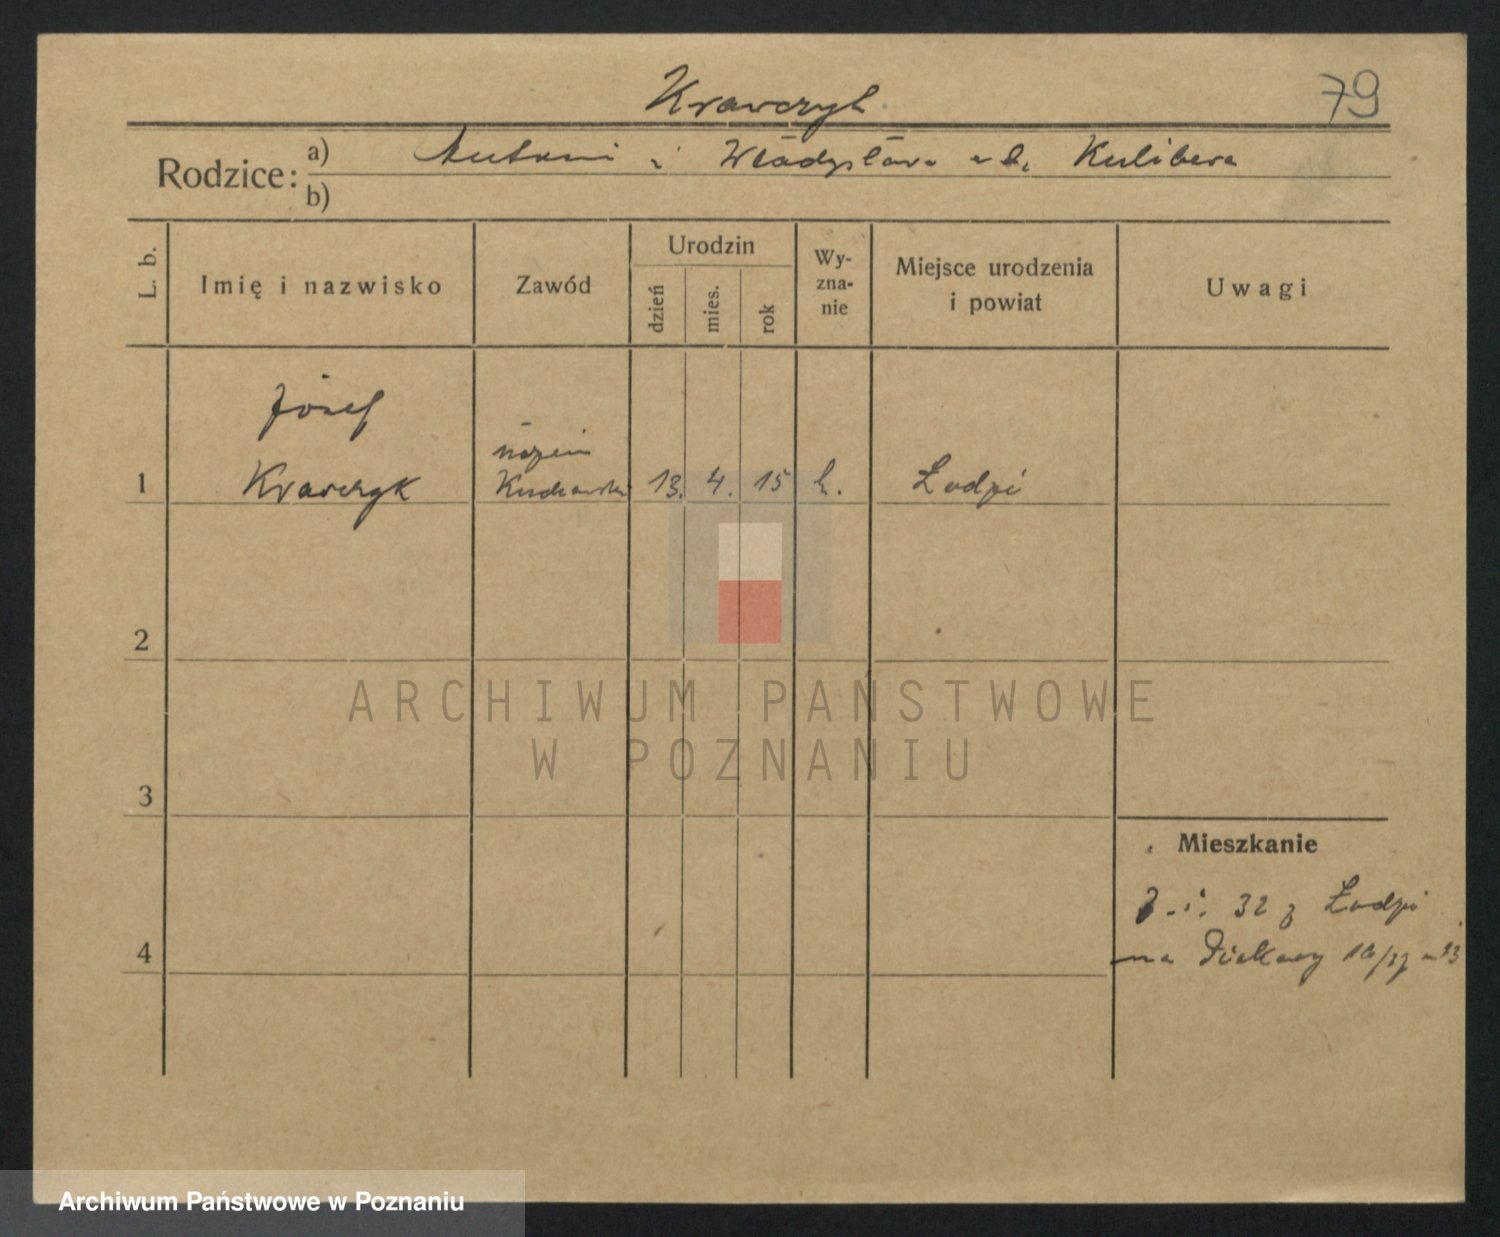 Krawczyk
79
Rodzice: a) Antoni i Władysława z d. Kulibera
b)
L. b.
Imię i nazwisko
Zawód
Urodzin
dzień
mies.
rok
Wy-
zna-
nie
Miejsce urodzenia
i powiat
Uwagi
Józef
1 Krawczyk 13. 4. 15 k. Łodzi
2
3
4
Mieszkanie
32 z Łodzi
na
ARCHIWUM PAŃSTWOWE
W POZNANIU
Archiwum Państwowe w Poznaniu